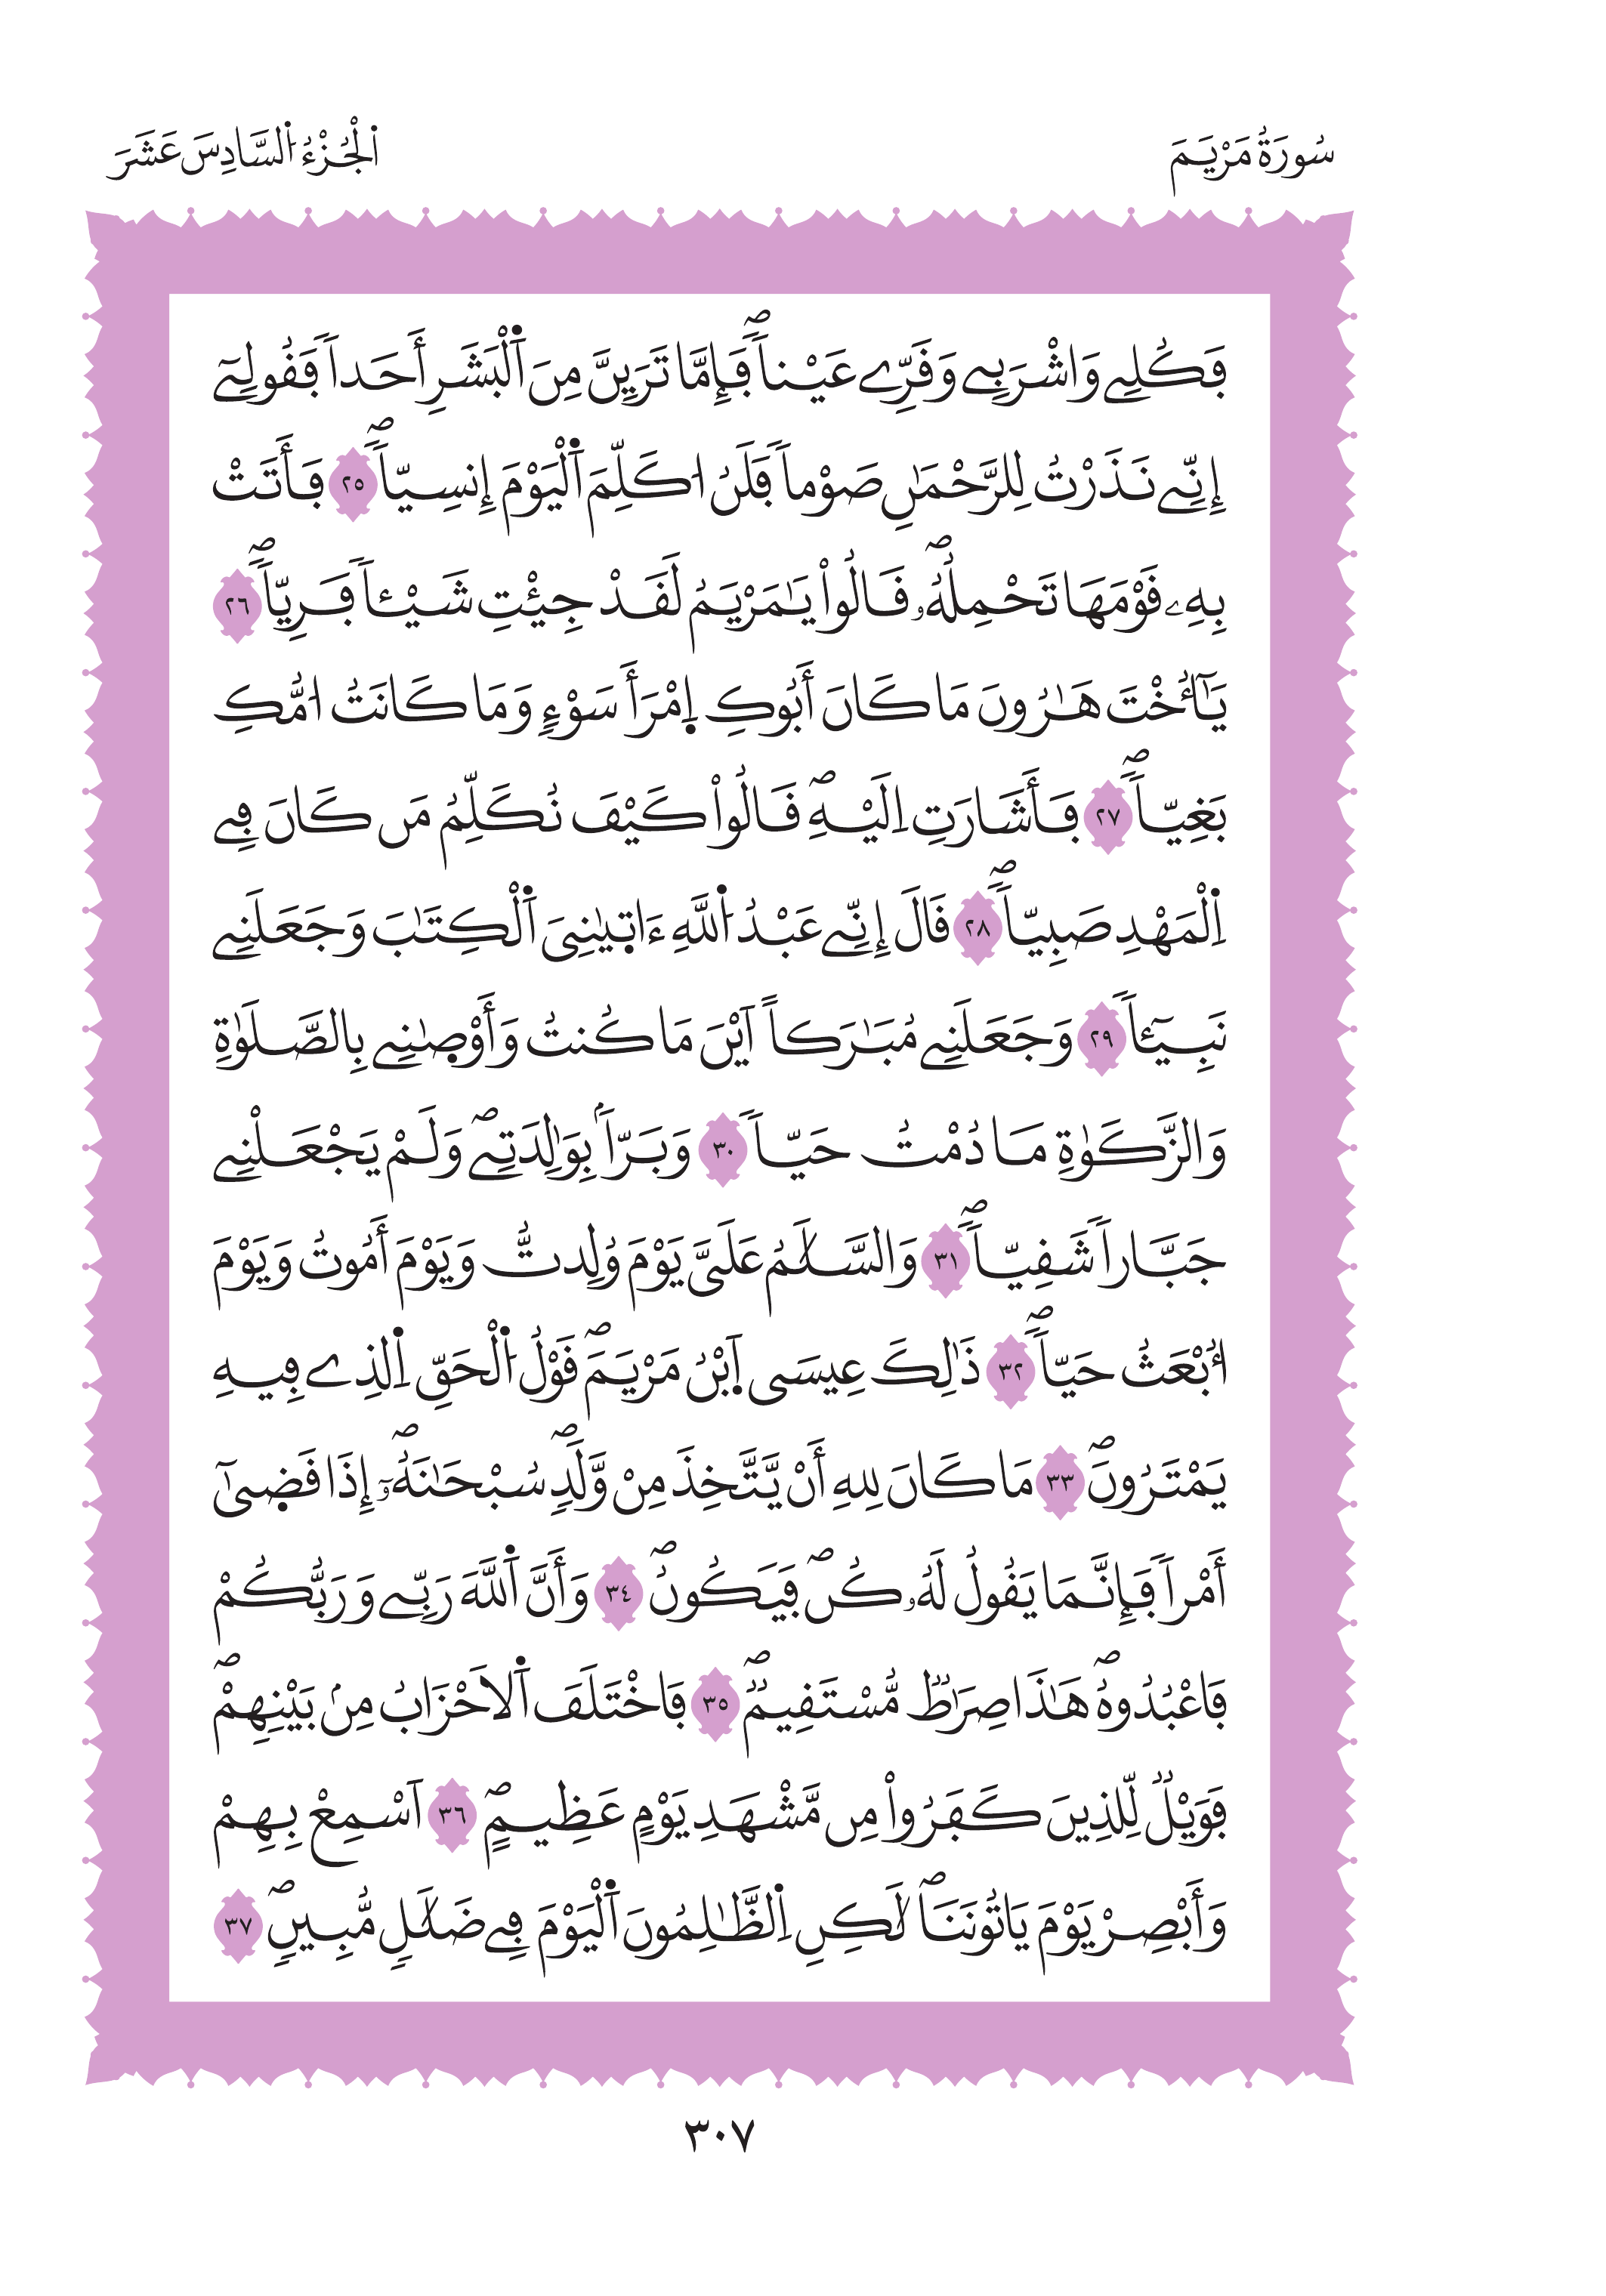 سُورَةُ مَرْيَمَ
اَ۬لْجُزْءُ اُ۬لسَّادِسَ عَشَرَ
فَكُلِے وَاشْرَبِے وَقَرِّے عَيْناٗۖ فَإِمَّا تَرَيِنَّ مِنَ اَ۬لْبَشَرِ أَحَداٗ فَقُولِےٓ
إِنِّے نَذَرْتُ لِلرَّحْمَٰنِ صَوْماٗ فَلَنُ ا۟كَلِّمَ اَ۬لْيَوْمَ إِنسِيّاٗۖ ٢٥ فَأَتَتْ
بِهِۦ قَوْمَهَا تَحْمِلُهُۥۖ قَالُواْ يَٰمَرْيَمُ لَقَدْ جِئْتِ شَيْـٔاٗ فَرِيّاٗۖ ٢٦
يَٰٓأُخْتَ هَٰرُونَ مَا كَانَ أَبُوكِ اِ۪مْرَأَ سَوْءٖ وَمَا كَانَتُ ا۟مُّكِ
بَغِيّاٗۖ ٢٧ فَأَشَارَتِ اِلَيْهِۖ قَالُواْ كَيْفَ نُكَلِّمُ مَن كَانَ فِے
اِ۬لْمَهْدِ صَبِيّاٗۖ ٢٨ قَالَ إِنِّے عَبْدُ اُ۬للَّهِ ءَات۪يٰنِيَ اَ۬لْكِتَٰبَ وَجَعَلَنِے
نَبِيٓـٔاٗ ٢٩ وَجَعَلَنِے مُبَٰرَكاً اَيْنَ مَا كُنتُ وَأَوْصٰ۪نِے بِالصَّلَوٰةِ
وَالزَّكَوٰةِ مَا دُمْتُ حَيّاٗ ٣٠ وَبَرّاَۢ بِوَٰلِدَتِےۖ وَلَمْ يَجْعَلْنِے
جَبَّاراٗ شَقِيّاٗۖ ٣١ وَالسَّلَٰمُ عَلَيَّ يَوْمَ وُلِدتُّ وَيَوْمَ أَمُوتُ وَيَوْمَ
أُبْعَثُ حَيّاٗۖ ٣٢ ذَٰلِكَ عِيسَى اَ۪بْنُ مَرْيَمَۖ قَوْلُ اُ۬لْحَقِّ اِ۬لذِے فِيهِ
يَمْتَرُونَۖ ٣٣ مَا كَانَ لِلهِ أَنْ يَّتَّخِذَ مِنْ وَّلَدٖۖ سُبْحَٰنَهُۥٓۖ إِذَا قَض۪ىٰٓ
أَمْراٗ فَإِنَّمَا يَقُولُ لَهُۥ كُنۖ فَيَكُونُۖ ٣٤ وَأَنَّ اَ۬للَّهَ رَبِّے وَرَبُّكُمْ
فَاعْبُدُوهُۖ هَٰذَا صِرَٰطٞ مُّسْتَقِيمٞۖ ٣٥ فَاخْتَلَفَ اَ۬لَاحْزَابُ مِنۢ بَيْنِهِمْۖ
فَوَيْلٞ لِّلذِينَ كَفَرُواْ مِن مَّشْهَدِ يَوْمٍ عَظِيمٍۖ ٣٦ اَسْمِعْ بِهِمْ
وَأَبْصِرْ يَوْمَ يَاتُونَنَاۖ لَٰكِنِ اِ۬لظَّٰلِمُونَ اَ۬لْيَوْمَ فِے ضَلَٰلٖ مُّبِينٖۖ ٣٧
٣٠٧